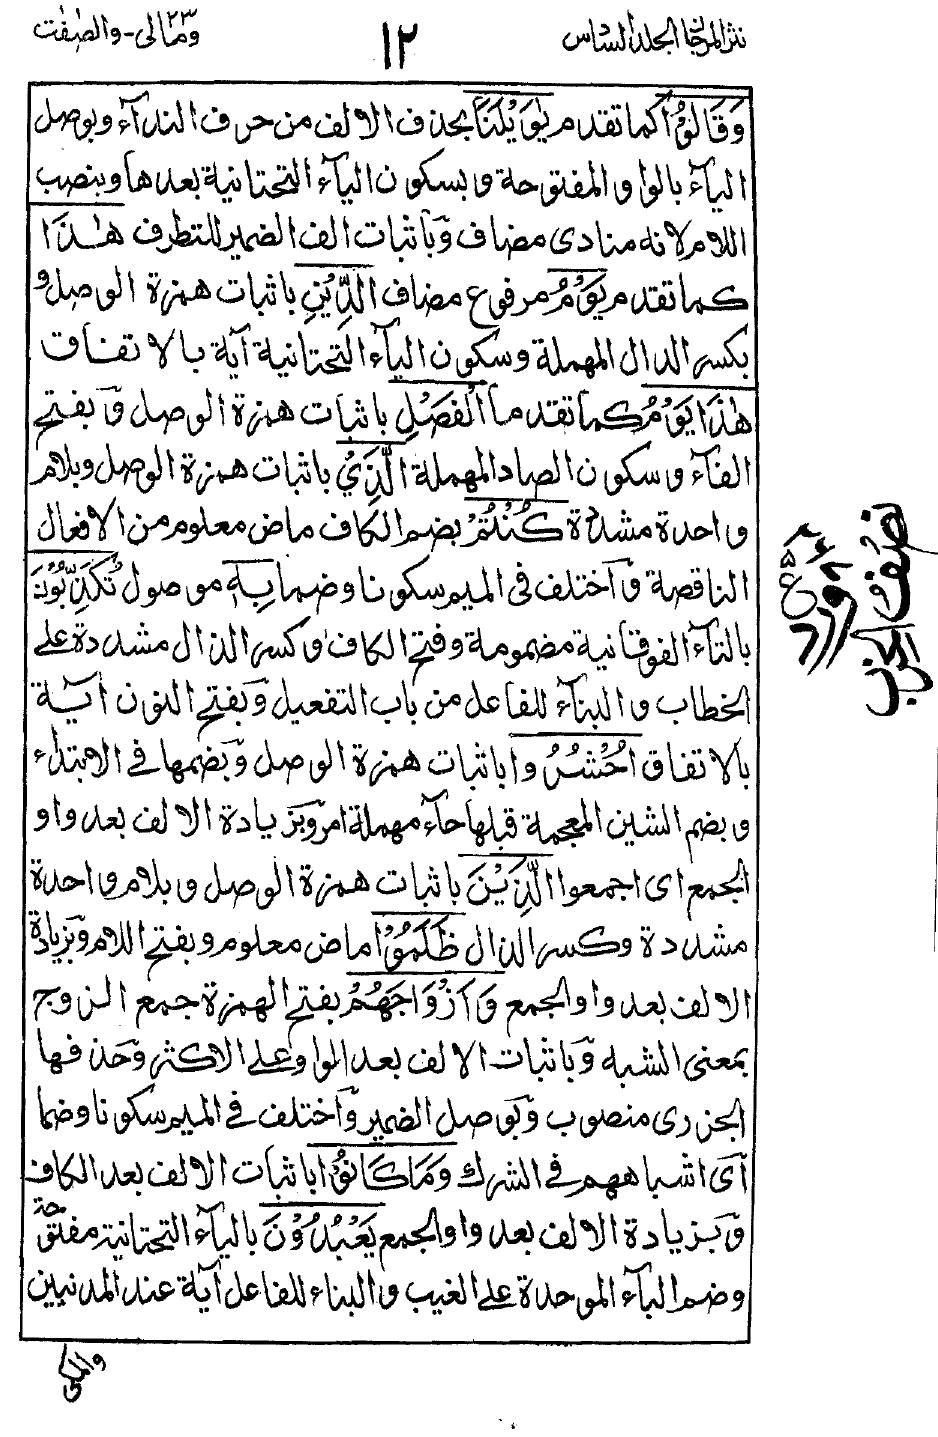 نثر المرجان الجلد السادس
١٢
ومالى ٢٣ - والصٰفٰت
وَقَالُوْا كما تقدم يٰوَيْلَنَا بحذف الالف من حرف الندآء وبوصل
اليآء بالواو المفتوحة وبسكون اليآء التحتانية بعدها وبنصب
اللام لانه منادى مضاف وّباثبات الف الضمير للتطرف هٰذَا
كما تقدم يَوْمُ مرفوع مضاف الدِّيْنِ باثبات همزة الوصل و
بكسر الدال المهملة وسكون اليآء التحتانية آية بالاتفاق
هٰذَا يَوْمُ كما تقدما الْفَصْلِ باثبات همزة الوصل وّبفتح
الفآء وسكون الصاد المهملة الَّذِيْ باثبات همزة الوصل وبلام
واحدة مشددة كُنْتُمْ بضم الكاف ماض معلوم من الافعال
الناقصة وّاختلف فى الميم سكونا وضما بِهٖ موصول تُكَذِّبُوْنَ
بالتآء الفوقانية مضمومة وفتح الكاف وكسر الذال مشددة على
الخطاب والبنآء للفاعل من باب التفعيل وّبفتح النون آية
بالاتفاق اُحْشُرُوا باثبات همزة الوصل وّبضمها فى الابتداء
وبضم الشين المعجمة قبلها حآء مهملة امر وّبزيادة الالف بعد واو
الجمع اى اجمعوا الَّذِيْنَ باثبات همزة الوصل وبلام واحدة
مشددة وكسر الذال ظَلَمُوْا ماض معلوم وبفتح اللام وّبزيادة
الالف بعد واو الجمع وَاَزْوَاجَهُمْ بفتح الهمزة جمع الزوج
بمعنى الشبه وّباثبات الالف بعد الواو على الاكثر وّحذفها
الجزرى منصوب وّبوصل الضمير وّاختلف فى الميم سكونا وضما
اى اشباههم فى الشرك وَمَا كَانُوْا باثبات الالف بعد الكاف
وّبزيادة الالف بعد واو الجمع يَعْبُدُوْنَ باليآء التحتانية مفتوحة
وضم البآء الموحدة على الغيب والبناء للفاعل آية عند المدنيين
والمكى
نصف الحزب